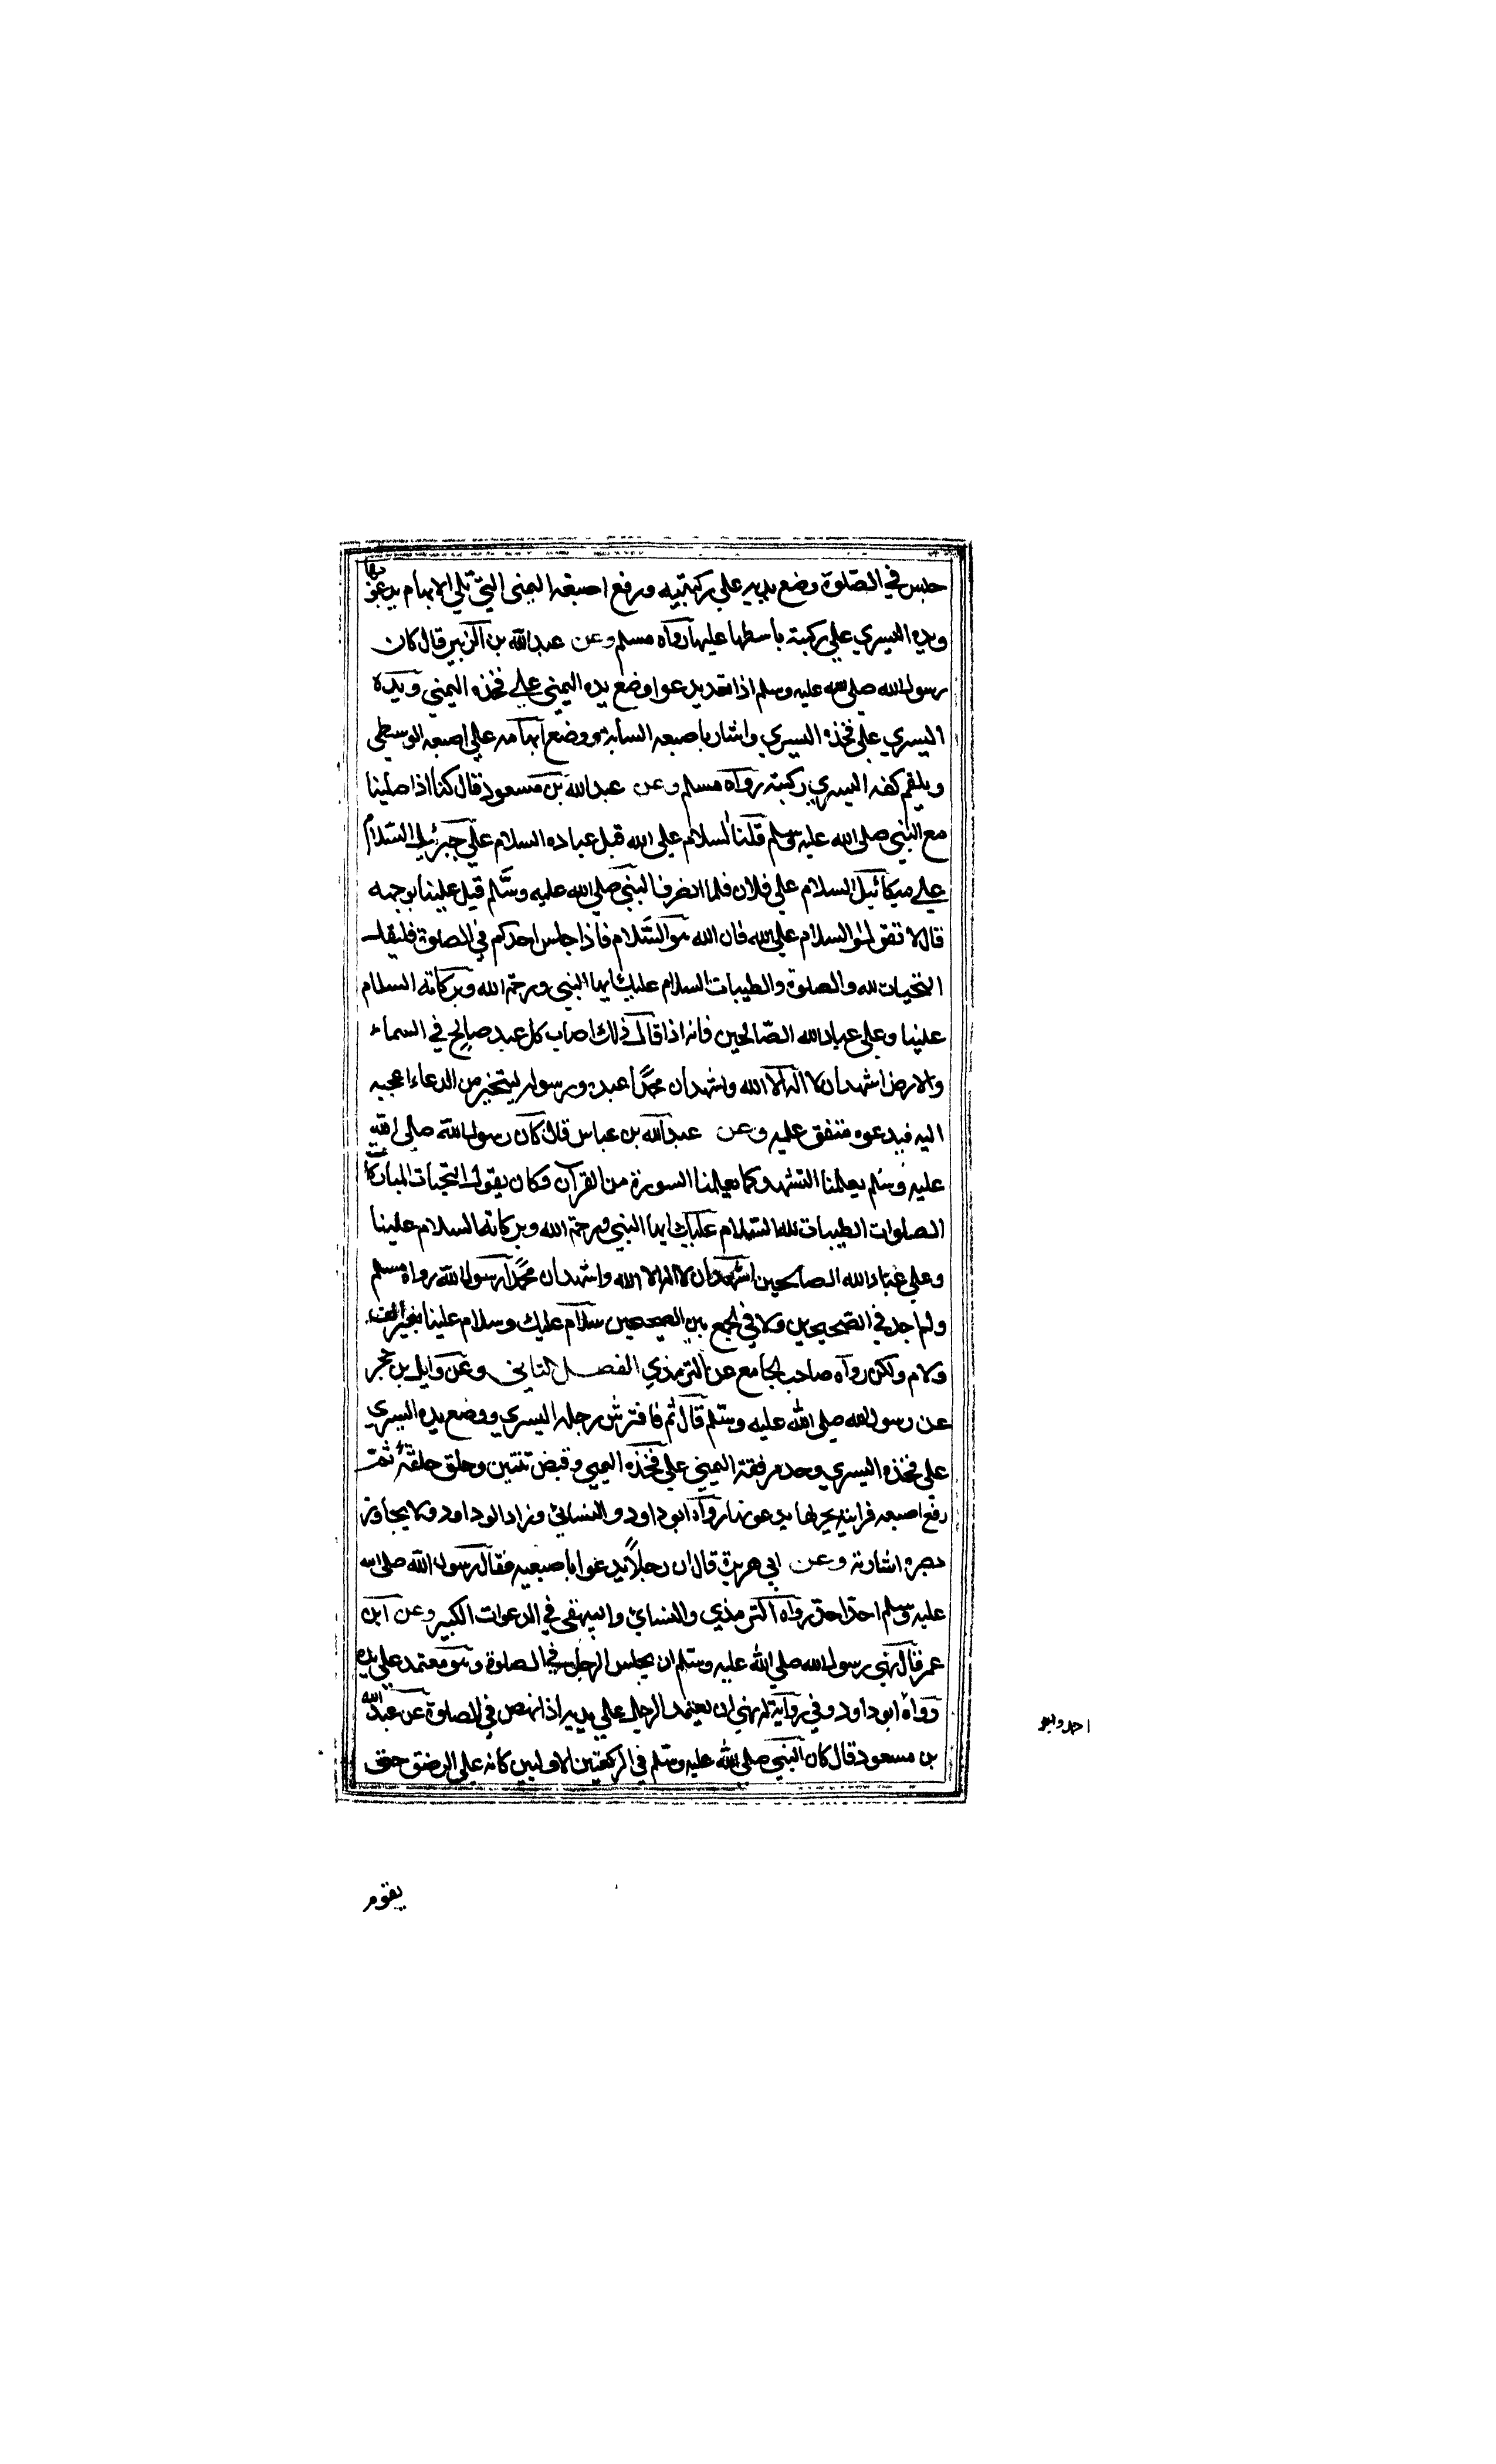 جلس في الصّلوة وضع يديه علي ركبتيه ورفع اصبعه اليمني التي تلي الابهام يدعو بها
ويده اليسري علي ركبته باسطها عليها رواه مسلم وعن عبد الله بن الزبير قال كان
رسول الله صلي الله عليه وسلم اذا قعد يدعوا وضع يده اليمني علي فخذه اليمني ويده
اليسري علي فخذه اليسري واشار باصبعه السبابة ووضع ابهامه علي اصبعه الوسطي
ويلقم كفه اليسري ركبته رواه مسلم وعن عبد الله بن مسعود قال كنا اذا صلينا
مع النبي صلي الله عليه وسلم قلنا السلام علي الله قبل عباده السلام علي جبرئيل السّلام
علي ميكائيل السلام علي فلان فلما انصرف النبي صلي الله عليه وسّلم قيل علينا بوجهه
قال لا تقولوا السلام علي الله فان الله هو السّلام فاذا جلس احدكم في الصلوة فليقل
التحيات لله والصلوة والطيبات السلام عليك ايها النبي ورحمة الله وبركاته السلام
علينا وعلي عباد الله الصّالحين فانه اذا قال ذلك اصاب كل عبد صالح في السماء
والارض اشهد ان لا اله الا الله واشهد ان محمّدا عبده ورسوله ليتخير من الدعاء اعجبه
اليه فيدعوه متفق عليه وعن عبد الله بن عباس قال كان رسول الله صلي الله
عليه وسلم يعلمنا التشهد كما يعلمنا السورة من القرآن فكان يقول التحيات المباركات
الصلوات الطيبات لله السّلام عليك ايها النبي ورحمة الله وبركاته السلام علينا
وعلي عباد الله الصالحين اشهد ان لا اله الا الله واشهد ان محمّدا رسول الله رواه مسلم
ولم اجد في الصّحيحين ولا في الجمع بين الصحيحين سلام عليك وسلام علينا بغير الف
ولام ولكن رواه صاحب الجامع عن الترمذي الفصل الثاني وعن وايل بن حجر
عن رسول الله صلي الله عليه وسّلم قال ثم فافترش رجله اليسري ووضع يده اليسري
علي فخذه اليسري وحد مرفقه اليمني علي فخذه اليمني وقبض ثنتين وحلق حلقة ثمّ
رفع اصبعه فرايته يحركها يدعو بها رواه ابو داود والنسائي وزاد ابو داود ولا يجاوز
بصره اشارته وعن ابي هريرة قال ان رجلاً يدعوا باصبعيه فقال رسول الله صلي الله
عليه وسلم احد احد رواه الترمذي والنسائي والبيهقي في الدعوات الكبير وعن ابن
عمر قال نهي رسول الله صلي الله عليه وسّلم ان يجلس الرجل في الصلوة وهو معتمد علي يده
رواه ابو داود وفي رواية له نهي ان يعتمد الرجل علي يديه اذا نهض في الصلوة عن عبد الله
بن مسعود قال كان النبي صلي الله عليه وسّلم في الركعتين الاوليين كانه علي الرضف حتي
يقوم